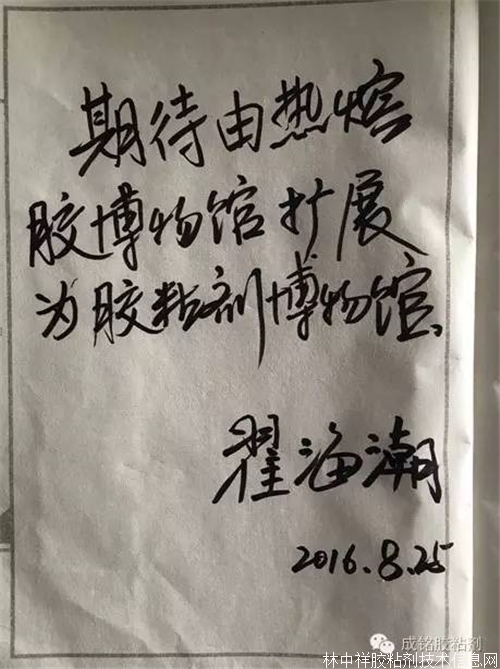 期待由热熔
胶博物馆扩展
为胶粘剂博物馆、
翟海潮
2016.8.25
成铭胶粘剂
林中祥胶粘剂技术信息网